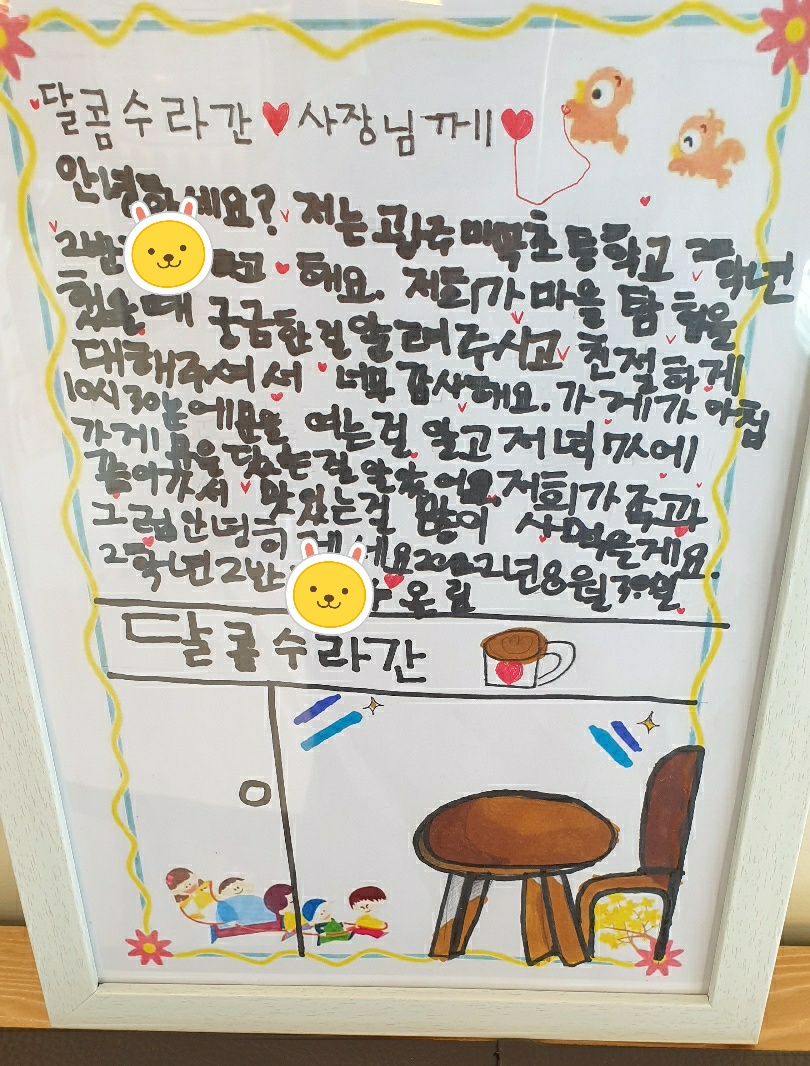 달콤수라간♥사장님께
안녕하세요? 저는 광주매곡초등학교 2학년
2반 라고 해요. 저희가 마을 탐험을
했을때 궁금한걸 알려주시고 친절하게
대해주셔서 너무 감사해요. 가게가 아침
10시 30분에 문을 여는걸 알고 저녁 7시에
가게 문을 닫는걸 알았어요. 저희가 족과
같이가서 맛있는걸 많이 사먹을게요.
그럼안녕히 계세요 2022년8월30일
2학년2반 올림
달콤수라간